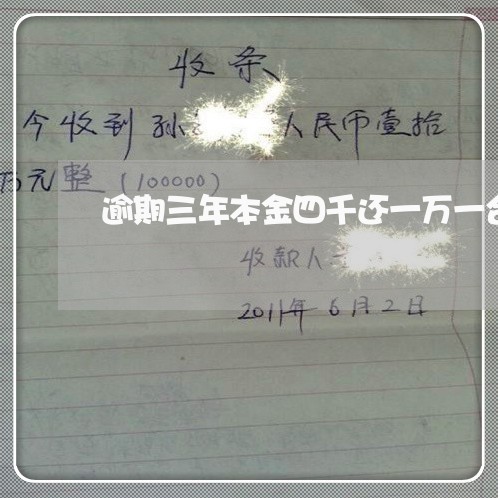 收条
今收到孙 人民币壹拾
万元整(100000)
逾期三年本金四千还一万一合
收款人
2011年6月2日